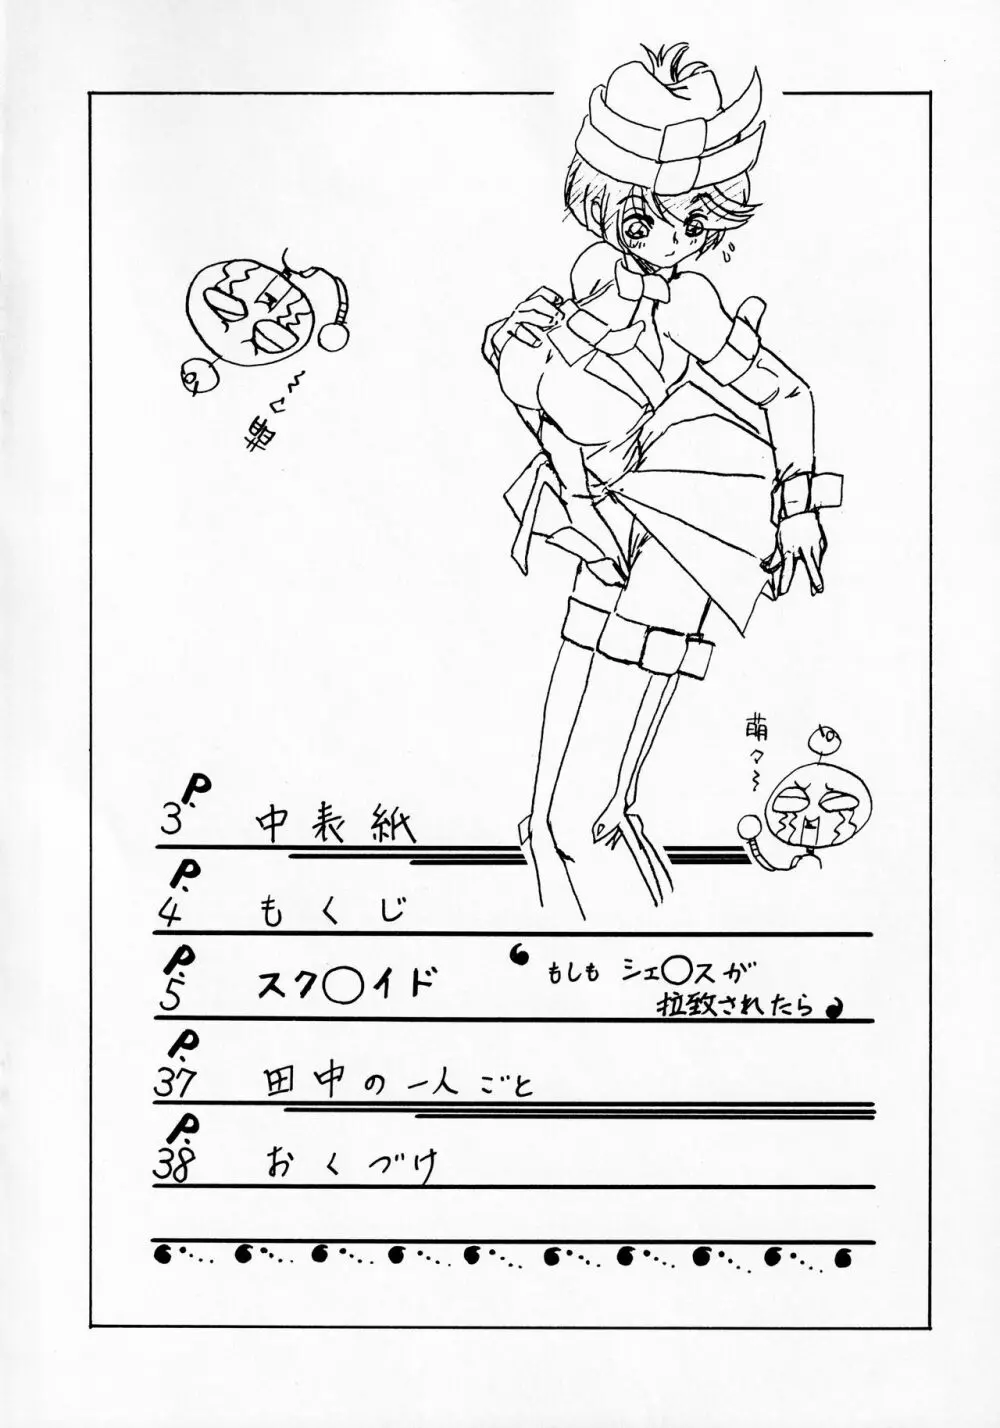 萌々〜
萌々〜
P.3 中表紙
P.4 もくじ
P.5 スク〇イド もしも シェ〇スが
拉致されたら
P.37 田中の一人ごと
P.38 おくづけ